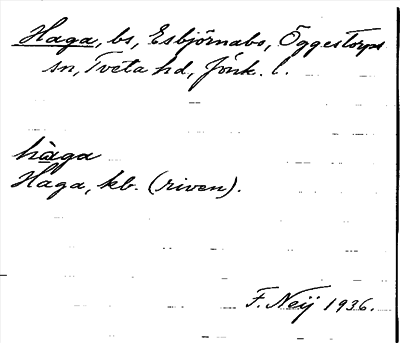 Haga, bs, Esbjörnabo, Öggestorps
sn, Tveta hd, Jönk. l.
hàga
Haga, kb. (riven).
F. Neij 1936.